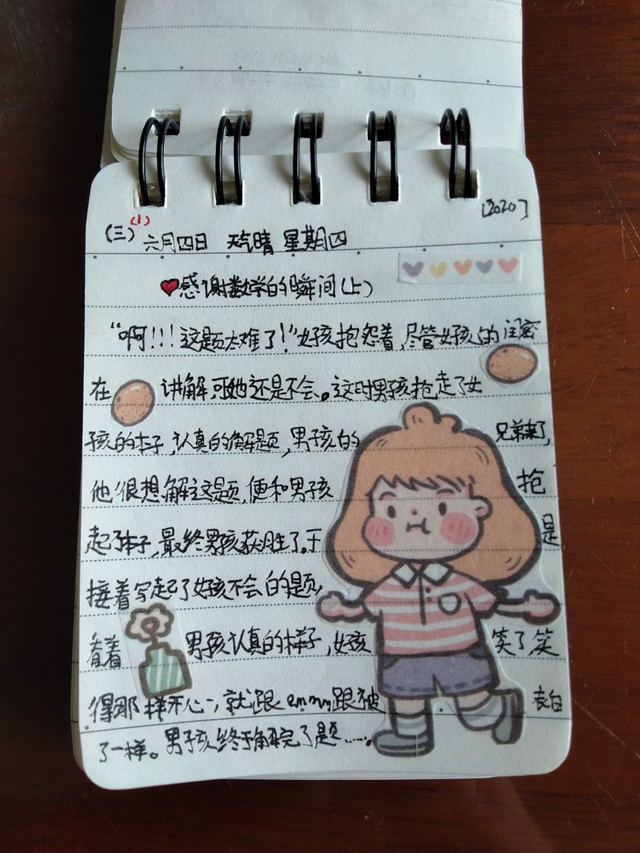 [2020]
(1)
(三) 六月四日 天气晴 星期四
感谢数学的瞬间(上)
"啊!!!这题太难了!"女孩抱怨着,尽管女孩的闺密
在 讲解,可她还是不会。这时男孩抢走了女
孩的本子,认真的解题,男孩的 兄弟来了,
他很想解这题,便和男孩 抢
起了本子,最终男孩获胜了。于 是
接着写起了女孩不会的题,
看着 男孩认真的样子,女孩 笑了,笑
得那样开心,就跟emmm跟被 表白
了一样。男孩终于解完了题……